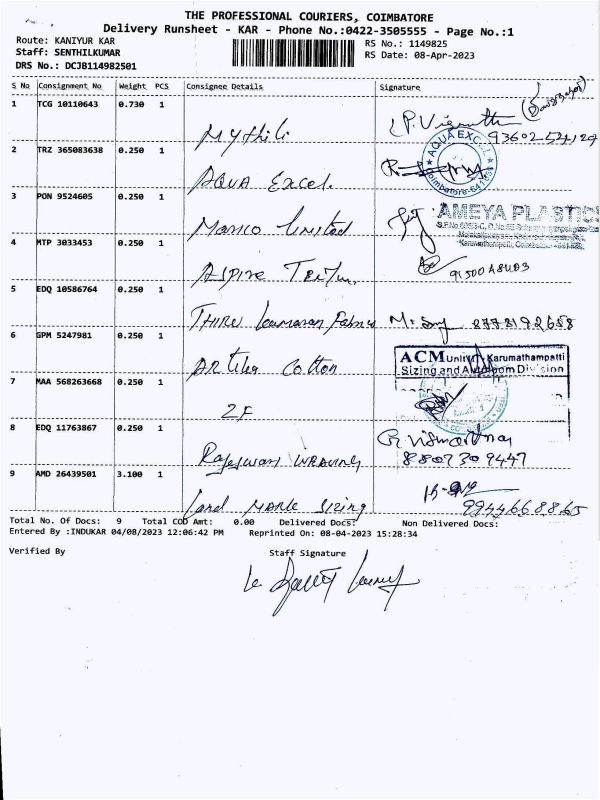 THE PROFESSIONAL COURIERS, COIMBATORE
Delivery Runsheet - KAR - Phone No.:0422-3505555 - Page No.:1
Route: KANIYUR KAR
RS No.: 1149825
Staff: SENTHILKUMAR
RS Date: 08-Apr-2023
DRS No.: DCJB114982501
S No Consignment No Weight PCS Consignee Details Signature
1 TCG 10110643 0.730 1 Mythili
2 TRZ 365083638 0.250 1 AQUA Excel
AQUA EXCEL
Coimbatore-641
3 PON 9524605 0.250 1 Marico Limited
AMEYA PLASTICS
4 MTP 3033453 0.250 1 ASPIRE
9150048403
5 EDQ 10586764 0.250 1 THIRU Kumaran
6 GPM 5247981 0.250 1 Cotton
ACM Unit Karumathampatti
Sizing and Division
7 MAA 568263668 0.250 1 ZF
8 EDQ 11763867 0.250 1 Rajeswari WEAVING
8807309447
9 AMD 26439501 3.100 1 MARK Sizing
9944668865
Total No. Of Docs: 9 Total COD Amt: 0.00 Delivered Docs: Non Delivered Docs:
Entered By :INDUKAR 04/08/2023 12:06:42 PM Reprinted On: 08-04-2023 15:28:34
Verified By Staff Signature